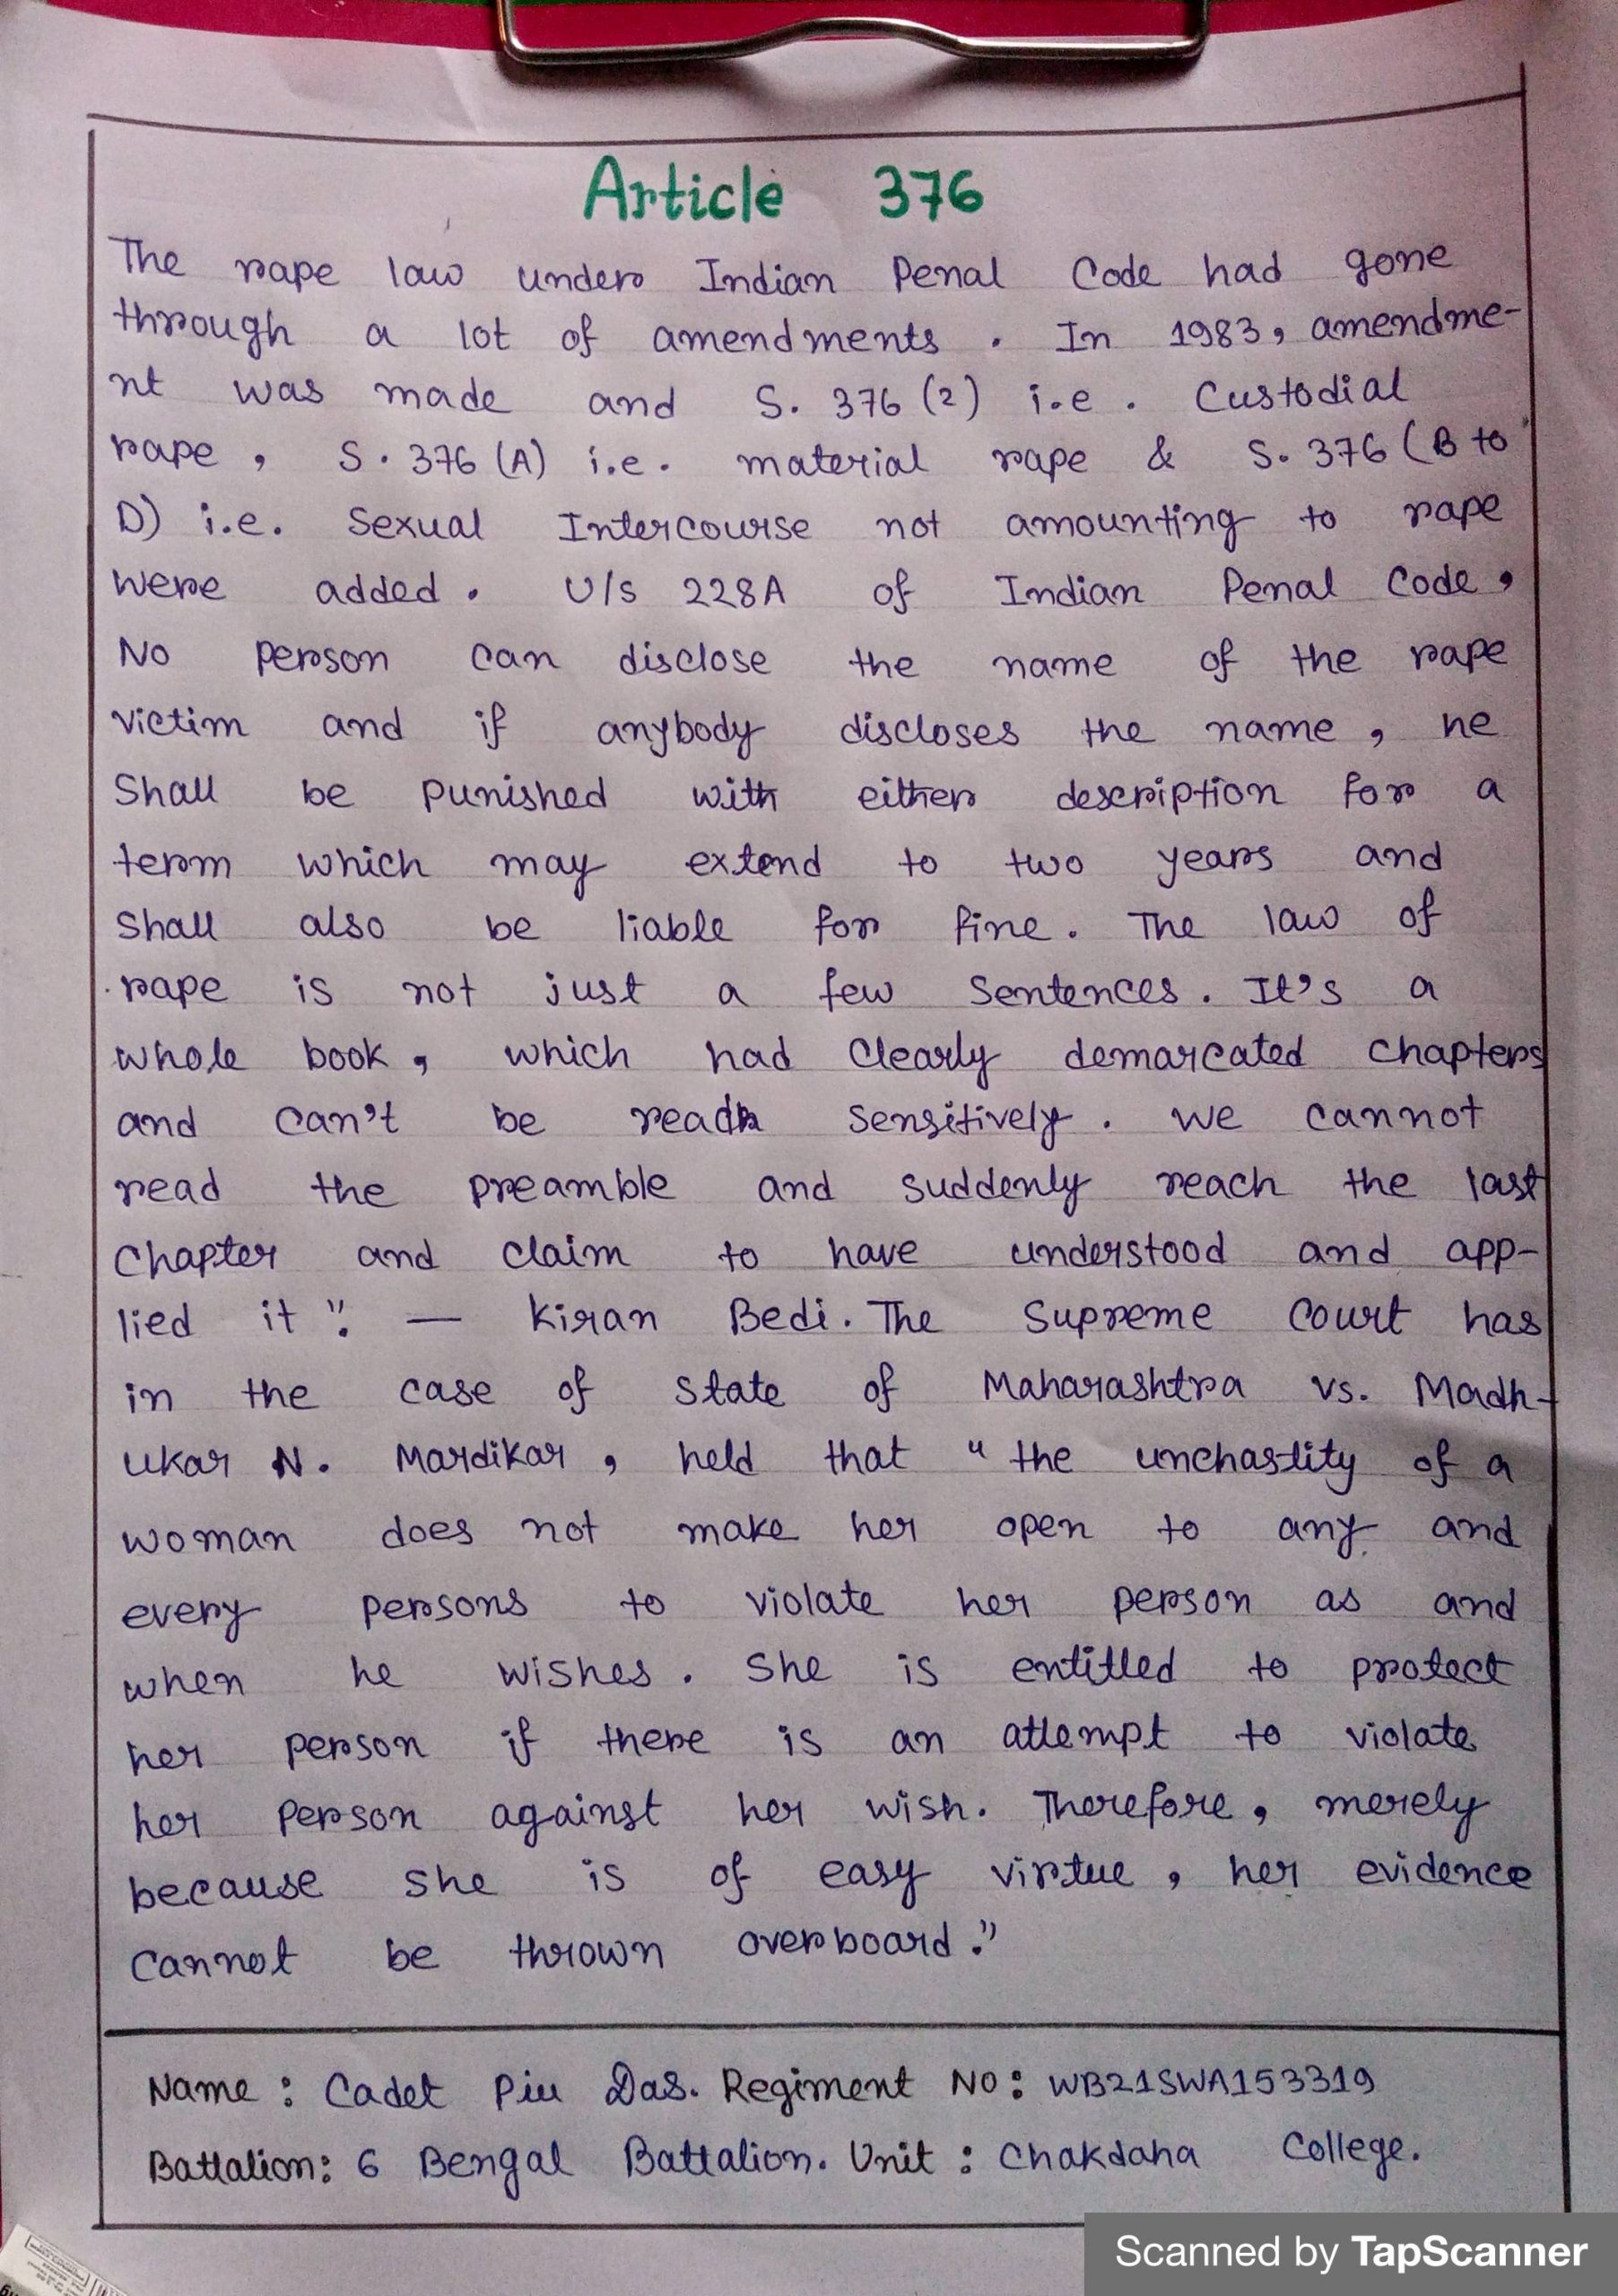 Article 376
The rape law under Indian Penal Code had gone
through a lot of amendments. In 1983, amendme-
nt was made and S. 376 (2) i.e. Custodial
rape, S. 376 (A) i.e. material rape & S. 376 (B to
D) i.e. Sexual Intercourse not amounting to rape
were added. U/s 228A of Indian Penal Code,
No person can disclose the name of the rape
victim and if anybody discloses the name, he
Shall be punished with either description for a
term which may extend to two years and
Shall also be liable for fine. The law of
rape is not just a few Sentences. It's a
whole book, which had Clearly demarcated Chapters
and can't be read Sensitively. We cannot
read the preamble and suddenly reach the last
Chapter and claim to have understood and app-
lied it". — Kiran Bedi. The Supreme Court has
in the case of State of Maharashtra vs. Madh-
ukar N. Mardikar, held that "the unchastity of a
woman does not make her open to any and
every persons to violate her person as and
when he wishes. She is entitled to protect
her person if there is an attempt to violate
her Person against her wish. Therefore, merely
because she is of easy virtue, her evidence
cannot be thrown overboard."
Name: Cadet Piu Das. Regiment No: WB21SWA153319
Battalion: 6 Bengal Battalion. Unit: Chakdaha College.
Scanned by TapScanner